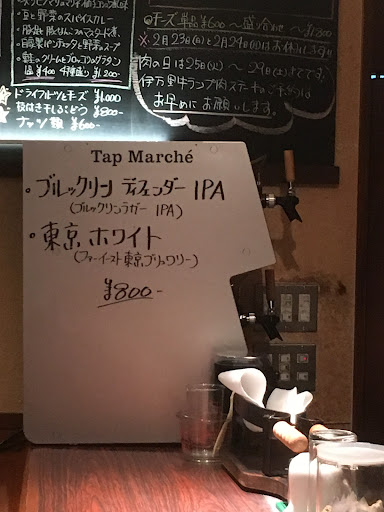 ・豆と野菜のスパイスカレー
・自家製パンチェッタと野菜のスープ
各¥400 4種盛り ¥1200-
☆ドライフルーツとチーズ ¥1000
ナッツ類 ¥600-
◎チーズ 単品¥600〜盛り合わせ〜¥1,800
※2月23日(日)と2月24日(月)はお休みします
肉の日は25日(火)〜29日(土)までです。
伊万里牛ランプ肉ステーキのご予約は
お早めにお願いします。
Tap Marché
・ブルックリン ディフェンダー IPA
(ブルックリンラガー IPA)
・東京ホワイト
(ファーイースト東京ブリュワリー)
¥800-